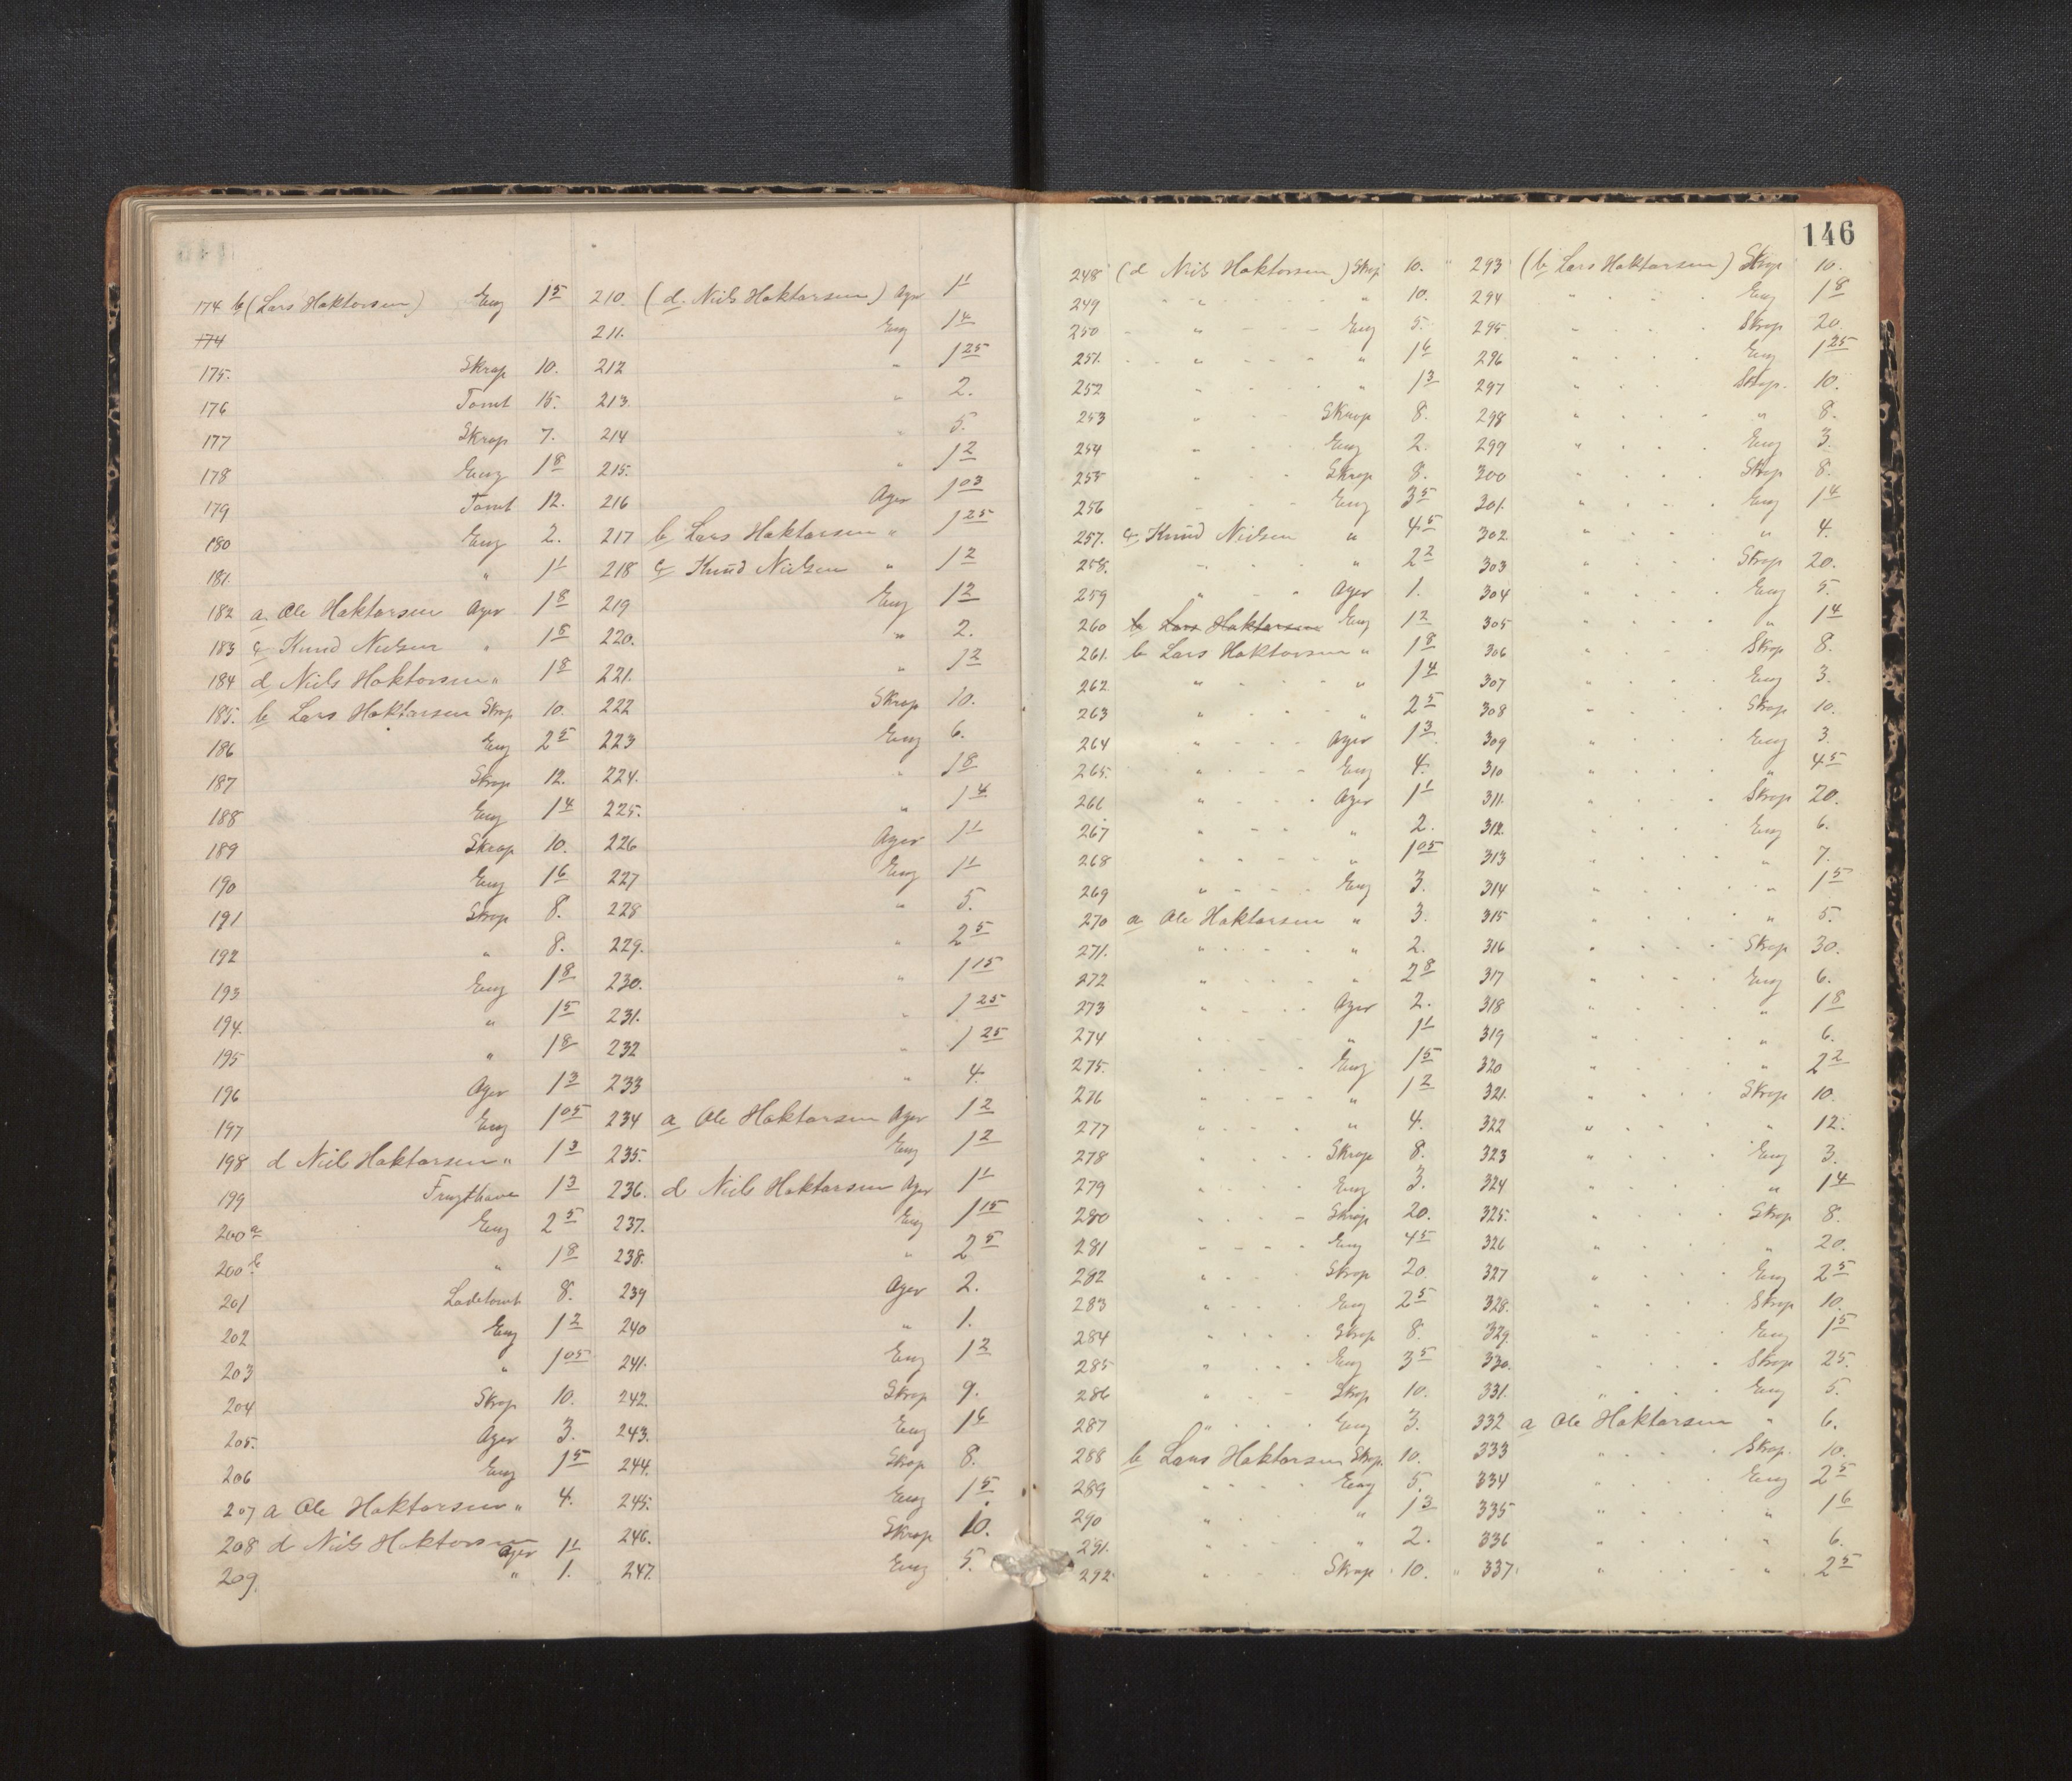 146
174 b (Lars Haktorsen) Eng 1 5
174
175. Skrap 10.
176 Tomt 15.
177 Skrap 7.
178 Eng 1 8
179 Tomt 12.
180 Eng 2.
181. " 1 1
182 a. Ole Haktorsen Ager 1 8
183 c Knud Nielsen " 1 8
184 d Niels Haktorsen " 1 8
185. b Lars Haktorsen Skrap 10.
186 Eng 2 5
187 Skrap 12.
188 Eng 1 4
189 Skrap 10.
190 Eng 1 6
191 Skrap 8.
192 " 8.
193 Eng 1 8
194. " 1 5
195 " 1 8
196 Ager 1 3
197 Eng 1 05
198 d Niels Haktorsen " 1 3
199 Frugthave 1 3
200 a Eng 2 5
200 b " 1 8
201 Ladetomt 8.
202 Eng 1 2
203 " 1 05
204 Skrap 10.
205. Ager 3.
206 Eng 1 5
207 a Ole Haktorsen " 4.
208 d Niels Haktorsen Ager 1 1
209. " 1.
210. (d. Niels Haktorsen) Ager 1 1
211. Eng 1 4
212 " 1 25
213. " 2.
214 " 5.
215. " 1 2
216 Ager 1 03
217 b Lars Haktorsen " 1 25
218 c Knud Nielsen " 1 2
219 Eng 1 2
220. " 2.
221. " 1 2
222 Skrap 10.
223 Eng 6.
224. " 1 8
225. " 1 4
226 Ager 1 1
227 Eng 1 1
228 " 5.
229. " 2 5
230. " 1 15
231. " 1 25
232 " 1 25
233 " 4.
234 a Ole Haktorsen Ager 1 2
235. Eng 1 2
236. d Niels Haktorsen Ager 1 1
237. Eng 1 15
238. " 2 5
239 Ager 2.
240 " 1.
241. Eng 1 2
242. Skrap 9.
243. Eng 1 6
244. Skrap 8.
245. Eng 1 5
246. Skrap 10.
247. Eng 5.
248 (d Niels Haktorsen) Skrap 10.
249 " " 10.
250 " Eng 5.
251. " " 1 6
252 " " 1 3
253 " Skrap 8.
254 " Eng 2.
255 Skrap 8.
256 Eng 3 5
257. c Knud Nielsen " 4 5
258. " 2 2
259 " Ager 1.
260 b Lars Haktorsen Eng 1 2
261. b Lars Haktorsen " 1 8
262. " " 1 4
263 " " 2 5
264 " Ager 1 3
265. " Eng 4.
266 " Ager 1 1
267 " " 2.
268 " " 1 05
269 " Eng 3.
270 a Ole Haktorsen " 3.
271. " " 2.
272 " " 2 8
273 " Ager 2.
274 " " 1 1
275. " Eng 1 5
276 " " 1 2
277 " " 4.
278 " Skrap 8.
279 " Eng 3.
280 " Skrap 20.
281 " Eng 4 5
282 " Skrap 20
283 " Eng 2 5
284 " Skrap 8.
285 " Eng 3 5
286 " Skrap 10.
287 " Eng 3.
288 b Lars Haktorsen Skrap. 10.
289 " Eng 5.
290 " " 1 3
291. " " 2.
292 " Skrap 10.
293 (b Lars Haktorsen) Skrap 10.
294 " Eng 1 8
295 " Skrap 20.
296 " Eng 1 25
297 " Skrap. 10.
298 " " 8.
299 " Eng 3.
300 " Skrap 8.
301. " Eng 1 4
302. " " 4.
303 " Skrap 20.
304 " Eng 5.
305 " " 1 4
306 " Skrap 8.
307 " Eng 3.
308 " Skrap 10.
309 " Eng 3.
310 " " 4 5
311. " Skrap 20.
312. " Eng 6.
313 " " 7.
314 " " 1 5
315 " " 5.
316 " Skrap 30.
317 " Eng 6.
318 " " 1 8
319 " " 6.
320 " " 2 2
321. " Skrap 10.
322 " " 12.
323 " Eng 3.
324 " " 1 4
325. " Skrap 8.
326 " " 20.
327 " Eng 2 5
328. " Skrap 10.
329. " Eng 1 5
330. " Skrap 25.
331. " Eng 5.
332 a Ole Haktorsen " 6.
333 " Skrap. 10.
334 " Eng 2 5
335 " " 1 6
336 " " 6.
337. " " 2 5